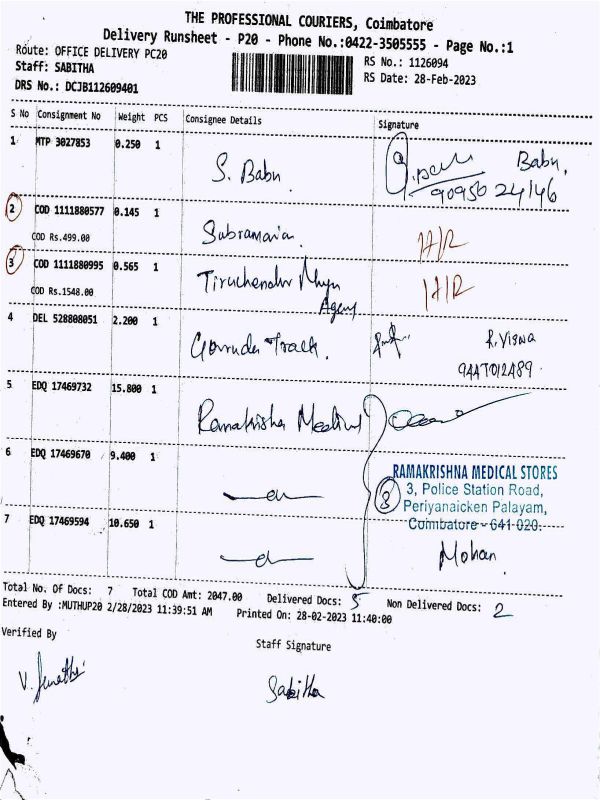 THE PROFESSIONAL COURIERS, Coimbatore
Delivery Runsheet - P20 - Phone No.:0422-3505555 - Page No.:1
Route: OFFICE DELIVERY PC20
Staff: SABITHA
DRS No.: DCJB112609401
RS No.: 1126094
RS Date: 28-Feb-2023
S No Consignment No Weight PCS Consignee Details Signature
1 MTP 3027853 0.250 1 S. Babu. Babu,
9095024146
2 COD 1111880577 0.145 1 Subramania.
COD Rs.499.00
3 COD 1111880995 0.565 1 Tiruchendur
COD Rs.1548.00 Agency
4 DEL 528808051 2.200 1 R. Viswa
5 EDQ 17469732 15.800 1 Ramakrishna Medical
6 EDQ 17469670 9.400 1
RAMAKRISHNA MEDICAL STORES
3, Police Station Road,
Periyanaicken Palayam,
Coimbatore - 641 020.
3
7 EDQ 17469594 10.650 1 Mohan.
Total No. Of Docs: 7 Total COD Amt: 2047.00 Delivered Docs: 5 Non Delivered Docs: 2
Entered By :MUTHUP20 2/28/2023 11:39:51 AM Printed On: 28-02-2023 11:40:00
Verified By Staff Signature
Sabitha